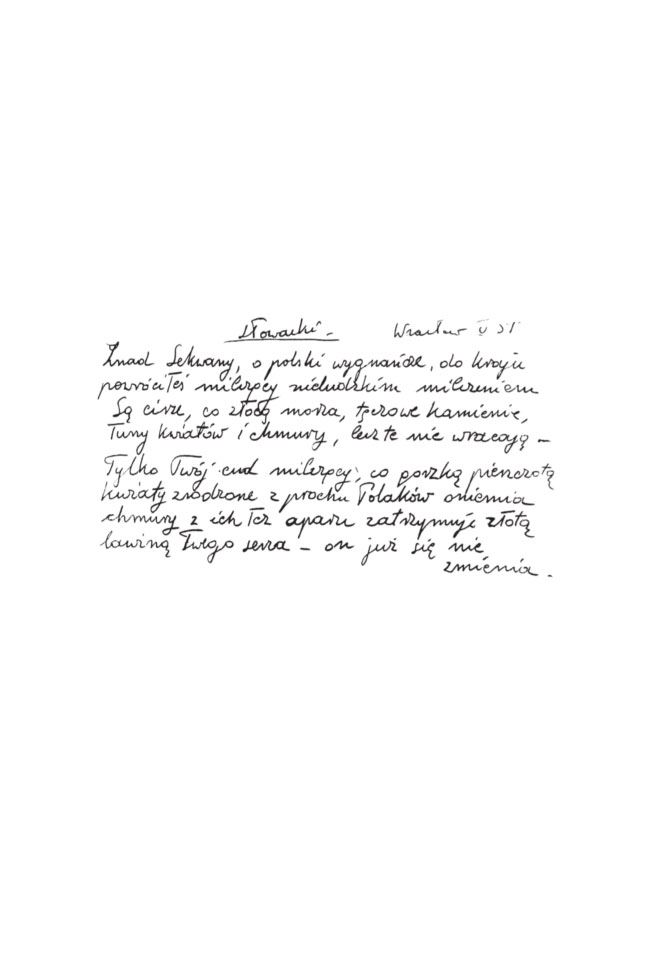 Słowacki – Wrocław V 51
Znad Sekwany, o polski wygnańcze, do kraju
powróciłeś milczący nieludzkim milczeniem
Są cisze, co złocą morza, tęczowe kamienie,
Łuny kwiatów i chmury, lecz te nie wracają –
Tylko Twój cud milczący, co pieszczotą
kwiaty zrodzone z prochu Polaków oniemia
chmury z ich łez oparu zatrzymuje złotą
lawiną Twego serca – on już się nie
zmienia.